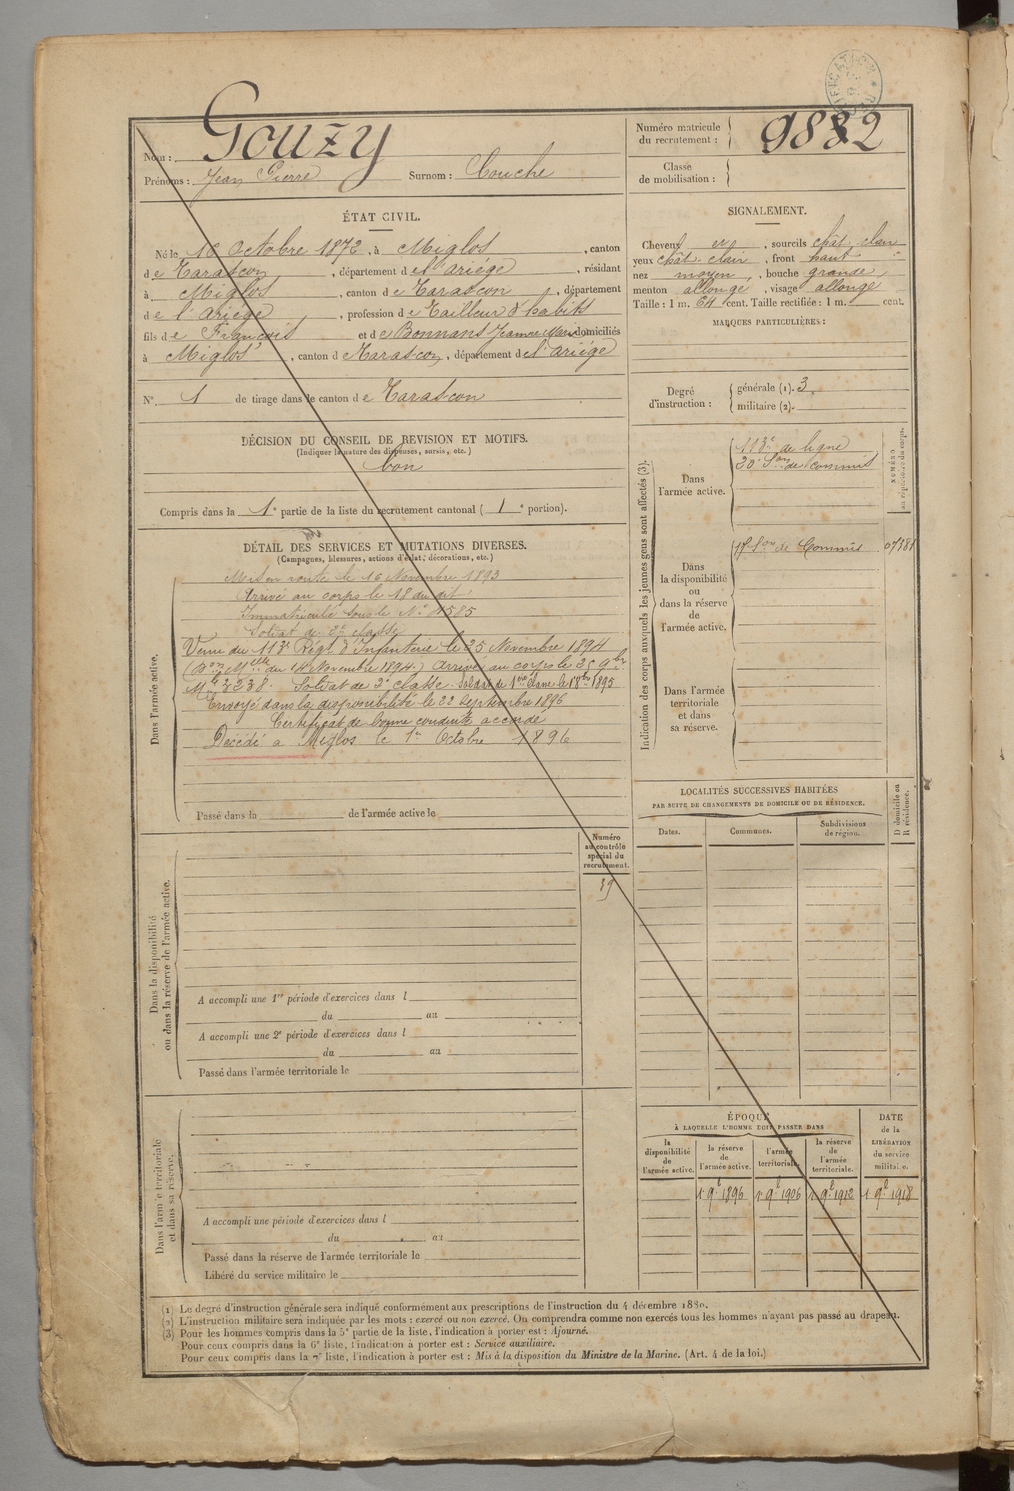 Nom : Gouzy
Prénoms : Jean Pierre Surnom : Couche
Numéro matricule du recrutement : 9882
Classe de mobilisation :
ÉTAT CIVIL.
Né le 10 Octobre 1872, à Miglos, canton
de Tarascon, département de l'ariége, résidant
à Miglos, canton de Tarascon, département
de l'ariége, profession de Tailleur d'habits
fils de François et de Bonnans Jeanne Marie domiciliés
à Miglos, canton de Tarascon, département de l'ariége
N° 1 de tirage dans le canton de Tarascon
SIGNALEMENT.
Cheveux et, sourcils chât. clain
yeux chât. clain, front haut
nez moyen, bouche grande,
menton allongé, visage allongé
Taille : 1 m. 64 cent. Taille rectifiée : 1 m. cent.
MARQUES PARTICULIÈRES :
Degré d'instruction :
générale (1). 3.
militaire (2).
DÉCISION DU CONSEIL DE REVISION ET MOTIFS.
(Indiquer la nature des dispenses, sursis, etc.)
bon
Compris dans la 1e partie de la liste du recrutement cantonal ( 1 e portion).
DÉTAIL DES SERVICES ET MUTATIONS DIVERSES.
(Campagnes, blessures, actions d'éclat, décorations, etc.)
Dans l'armée active.
Mis en route le 16 Novembre 1893
Arrivé au corps le 18 du dit
Immatriculé sous le N° 1585
Soldat de 2e classe
Venu du 113e Régt d'Infanterie le 25 Novembre 1894
(Don Mlle du 14 Novembre 1894.) Arrivé au corps le 25 9bre
Mle 2238. Soldat de 2e classe. Soldat de 1ère classe le 18 bre 1895
Envoyé dans la disponibilité le 22 Septembre 1896
Certificat de bonne conduite accordé
Décédé à Miglos le 1er Octobre 1896
Passé dans la de l'armée active le
Indication des corps auxquels les jeunes gens sont affectés (3).
NUMÉRO au répertoire du corps.
Dans l'armée active.
113e de ligne
20e Son de commis
Dans la disponibilité ou dans la réserve de l'armée active.
17e Son de Commis 07381
Dans l'armée territoriale et dans sa réserve.
LOCALITÉS SUCCESSIVES HABITÉES
PAR SUITE DE CHANGEMENTS DE DOMICILE OU DE RÉSIDENCE.
Dates. Communes. Subdivisions de région. D domicile ou R résidence.
Numéro au contrôle spécial du recrutement.
39
Dans la disponibilité ou dans la réserve de l'armée active.
A accompli une 1re période d'exercices dans l
du au
A accompli une 2e période d'exercices dans l
du au
Passé dans l'armée territoriale le
Dans l'armée territoriale et dans sa réserve.
A accompli une période d'exercices dans l
du au
Passé dans la réserve de l'armée territoriale le
Libéré du service militaire le
ÉPOQUE
À LAQUELLE L'HOMME DOIT PASSER DANS
DATE de la LIBÉRATION du service militaire.
la disponibilité de l'armée active.
la réserve de l'armée active.
l'armée territoriale.
la réserve de l'armée territoriale.
1 9e 1896 1 9e 1906 1 9e 1912 1 9e 1918
(1) Le degré d'instruction générale sera indiqué conformément aux prescriptions de l'instruction du 4 décembre 1880.
(2) L'instruction militaire sera indiquée par les mots : exercé ou non exercé. On comprendra comme non exercés tous les hommes n'ayant pas passé au drapeau.
(3) Pour les hommes compris dans la 5e partie de la liste, l'indication à porter est : Ajourné.
Pour ceux compris dans la 6e liste, l'indication à porter est : Service auxiliaire.
Pour ceux compris dans la 7e liste, l'indication à porter est : Mis à la disposition du Ministre de la Marine. (Art. 4 de la loi.)